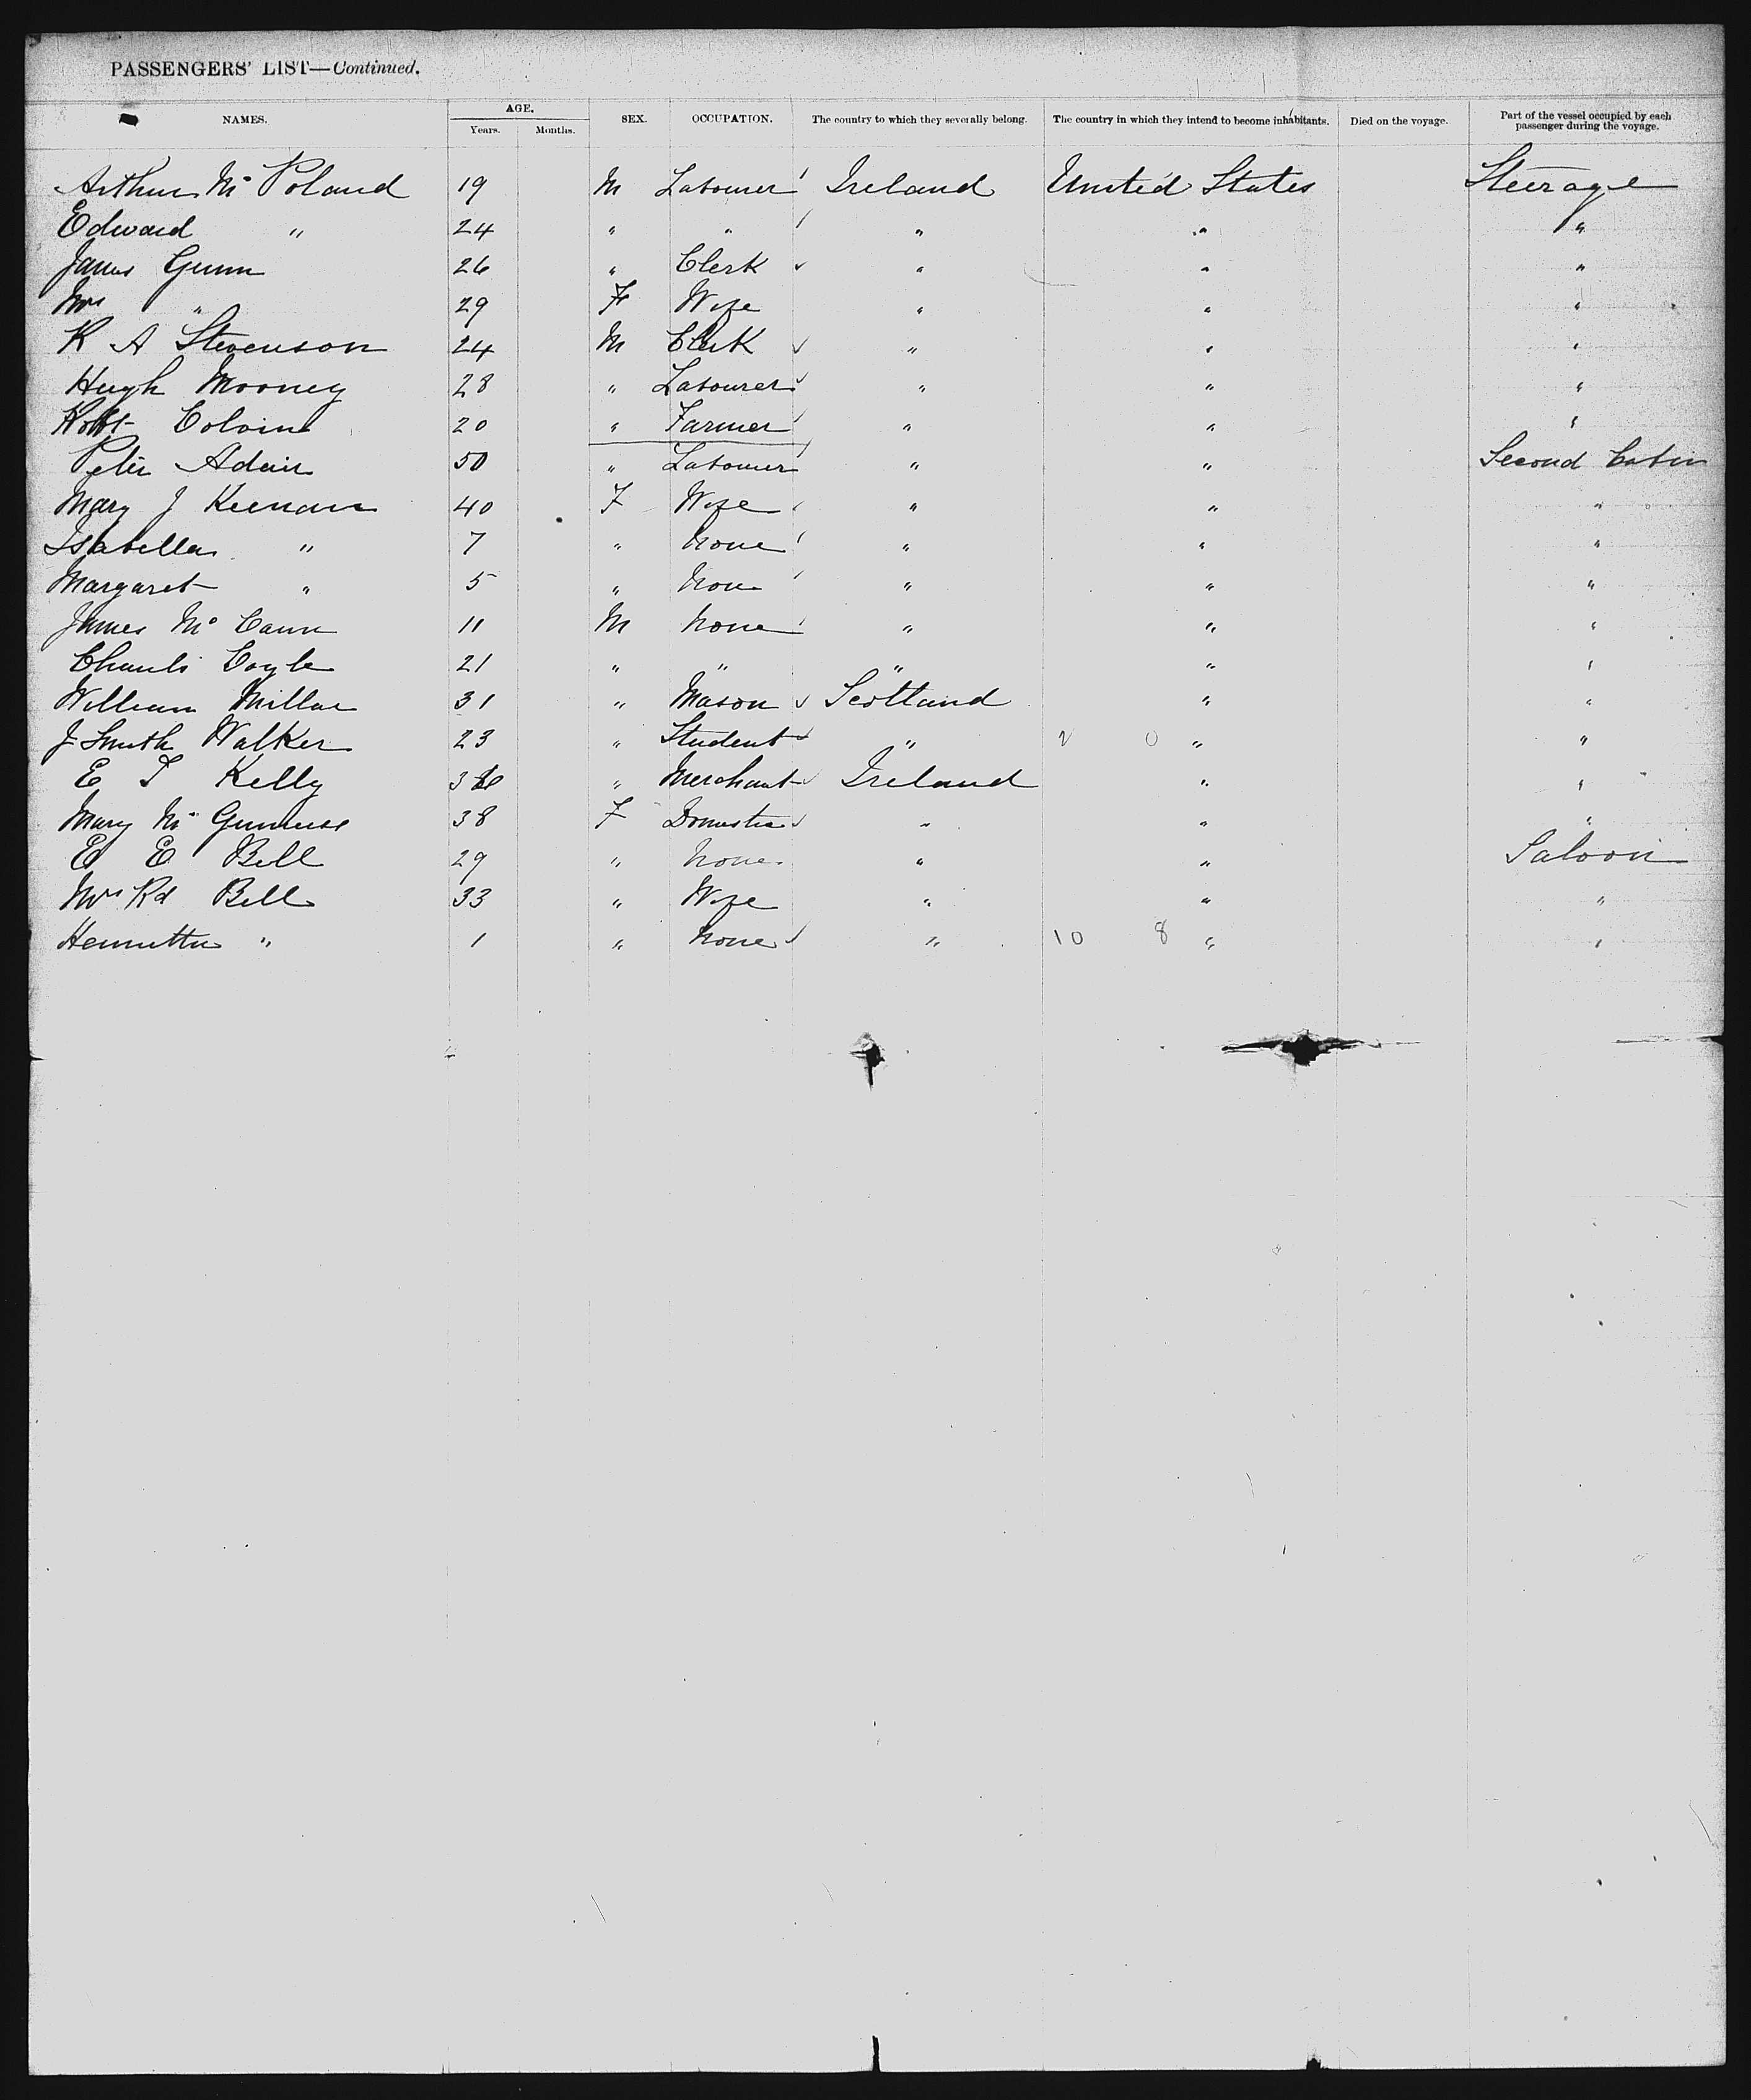 PASSENGERS' LIST—Continued.
NAMES. AGE. Years. Months. SEX. OCCUPATION. The country to which they severally belong. The country in which they intend to become inhabitants. Died on the voyage. Part of the vessel occupied by each passenger during the voyage.
Arthur Mc Poland 19 M Labourer Ireland United States Steerage
Edward " 24 " " " " "
James Gunn 26 " Clerk " " "
Mrs " 29 F Wife " " "
R A Stevenson 24 M Clerk " " "
Hugh Mooney 28 " Labourer " " "
Robt Colvin 20 " Farmer " " "
Peter Adair 50 " Labourer " " Second Cabin
Mary J Keenan 40 F Wife " " "
Isabella " 7 " None " " "
Margaret " 5 " None " " "
James Mc Cann 11 M None " " "
Charls Coyle 21 " " " " "
William Millar 31 " Mason Scotland " "
J Smith Walker 23 " Student " 2 0 " "
E T Kelly 36 " Merchant Ireland " "
Mary Mc 38 F Domestic " " "
E E Bell 29 " None " " Saloon
Mrs Rd Bell 33 " Wife " " "
Henrietta " 1 " None " 10 8 " "